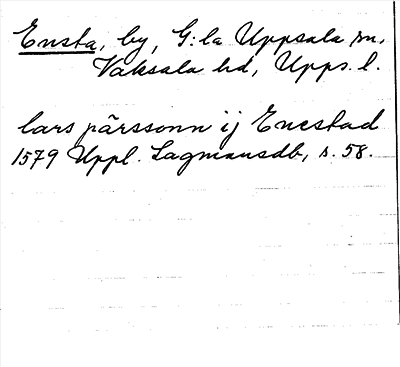 Ensta, by, G:la Uppsala sn,
Vaksala hd, Upps. l.
lars pärssonn ij Enestad
1579 Uppl. Lagmansdb, s. 58.